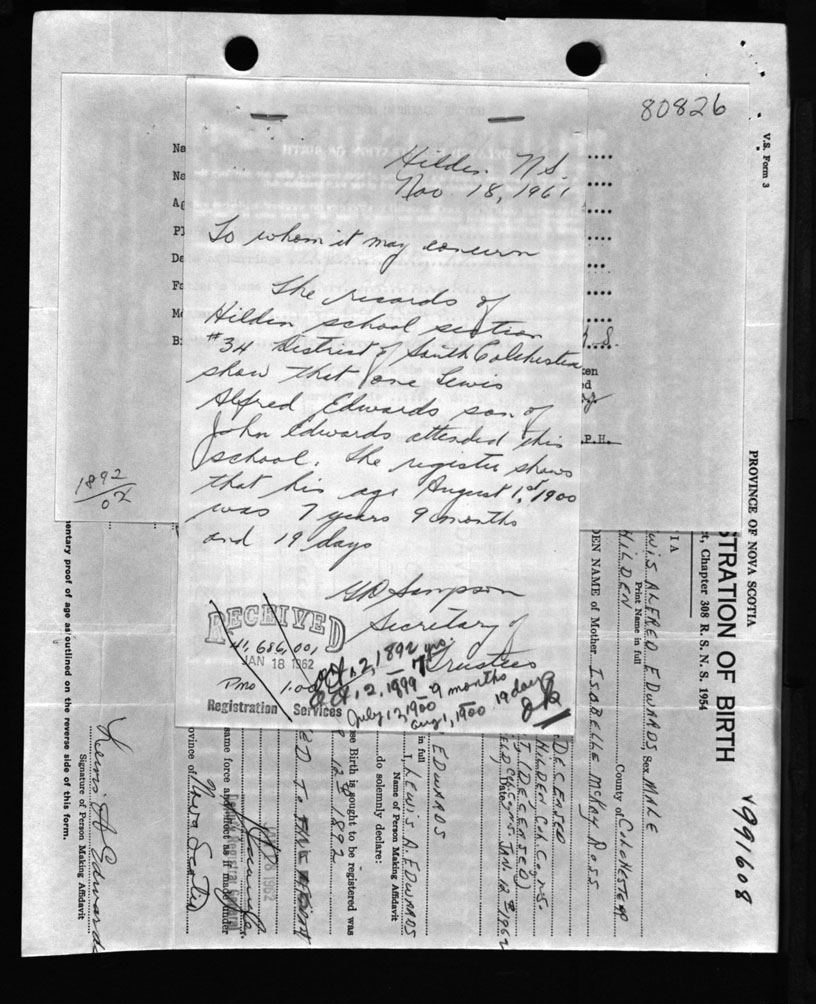 80826
V.S. Form 3
Hilden. N.S.
Nov. 18, 1961
To whom it may concern
The records of
Hilden school section
#34 District of South Colchester
show that one Lewis
Alfred Edwards son of
John Edwards attended this
school. The register shows
that his age August 1st, 1900
was 7 years 9 months
and 19 days
Simpson
Secretary of
Trustees
RECEIVED
JAN 18 1962
Registration Services
Oct. 12, 1892
7 yrs.
Oct. 12, 1899 - 9 months
July 12, 1900
Aug 1, 1900 19 days
1892
02
Na
Na
Ag
Pl
Da
Fa
Mo
B
P.H.
PROVINCE OF NOVA SCOTIA
STRATION OF BIRTH
Chapter 308 R. S. N. S. 1954
V991608
WIS ALFRED EDWARDS, Sex MALE
Print Name in full
HILDEN County of COLCHESTER
DEN NAME of Mother ISABELLE McKAY ROSS
DECEASED
HILDEN COL. CO., N.S.
(DECEASED)
JAN. 12 1962
EDWARDS
in full
I, LEWIS A. EDWARDS
Name of Person Making Affidavit
do solemnly declare:
se Birth is sought to be registered was
12th 1892
same force and effect as if made under
ovince of Nova Scotia
Lewis A Edwards
Signature of Person Making Affidavit
entary proof of age as outlined on the reverse side of this form.